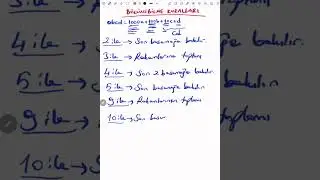 BÖLÜNEBİLME KURALLARI
abcd = 1000a + 100b + 10c + d
cd
2 ile → Son basamağa bakılır
3 ile → Rakamlarının toplamı
4 ile → Son 2 basamağa bakılır
5 ile → Son basamağa bakılır
9 ile → Rakamlarının toplamı
10 ile → Son basa